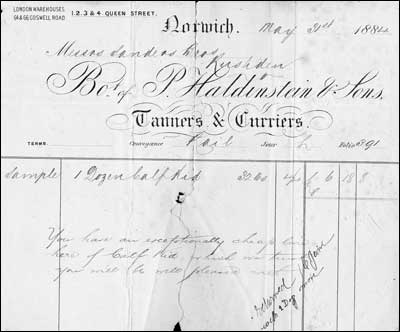 LONDON WAREHOUSES
64 & 66 GOSWELL ROAD
1. 2. 3 & 4. QUEEN STREET.
Norwich. May 31st 1884
Messrs Sanders Bros
Rushden
Bot. of P. Haldinstein & Sons,
Tanners & Curriers.
TERMS Conveyance Rail Folio 391
Sample 1 Dozen Calf Kid
You have an exceptionally cheap line
here of Calf Kid which we
you will be well pleased with
Returned
with 2 Doz